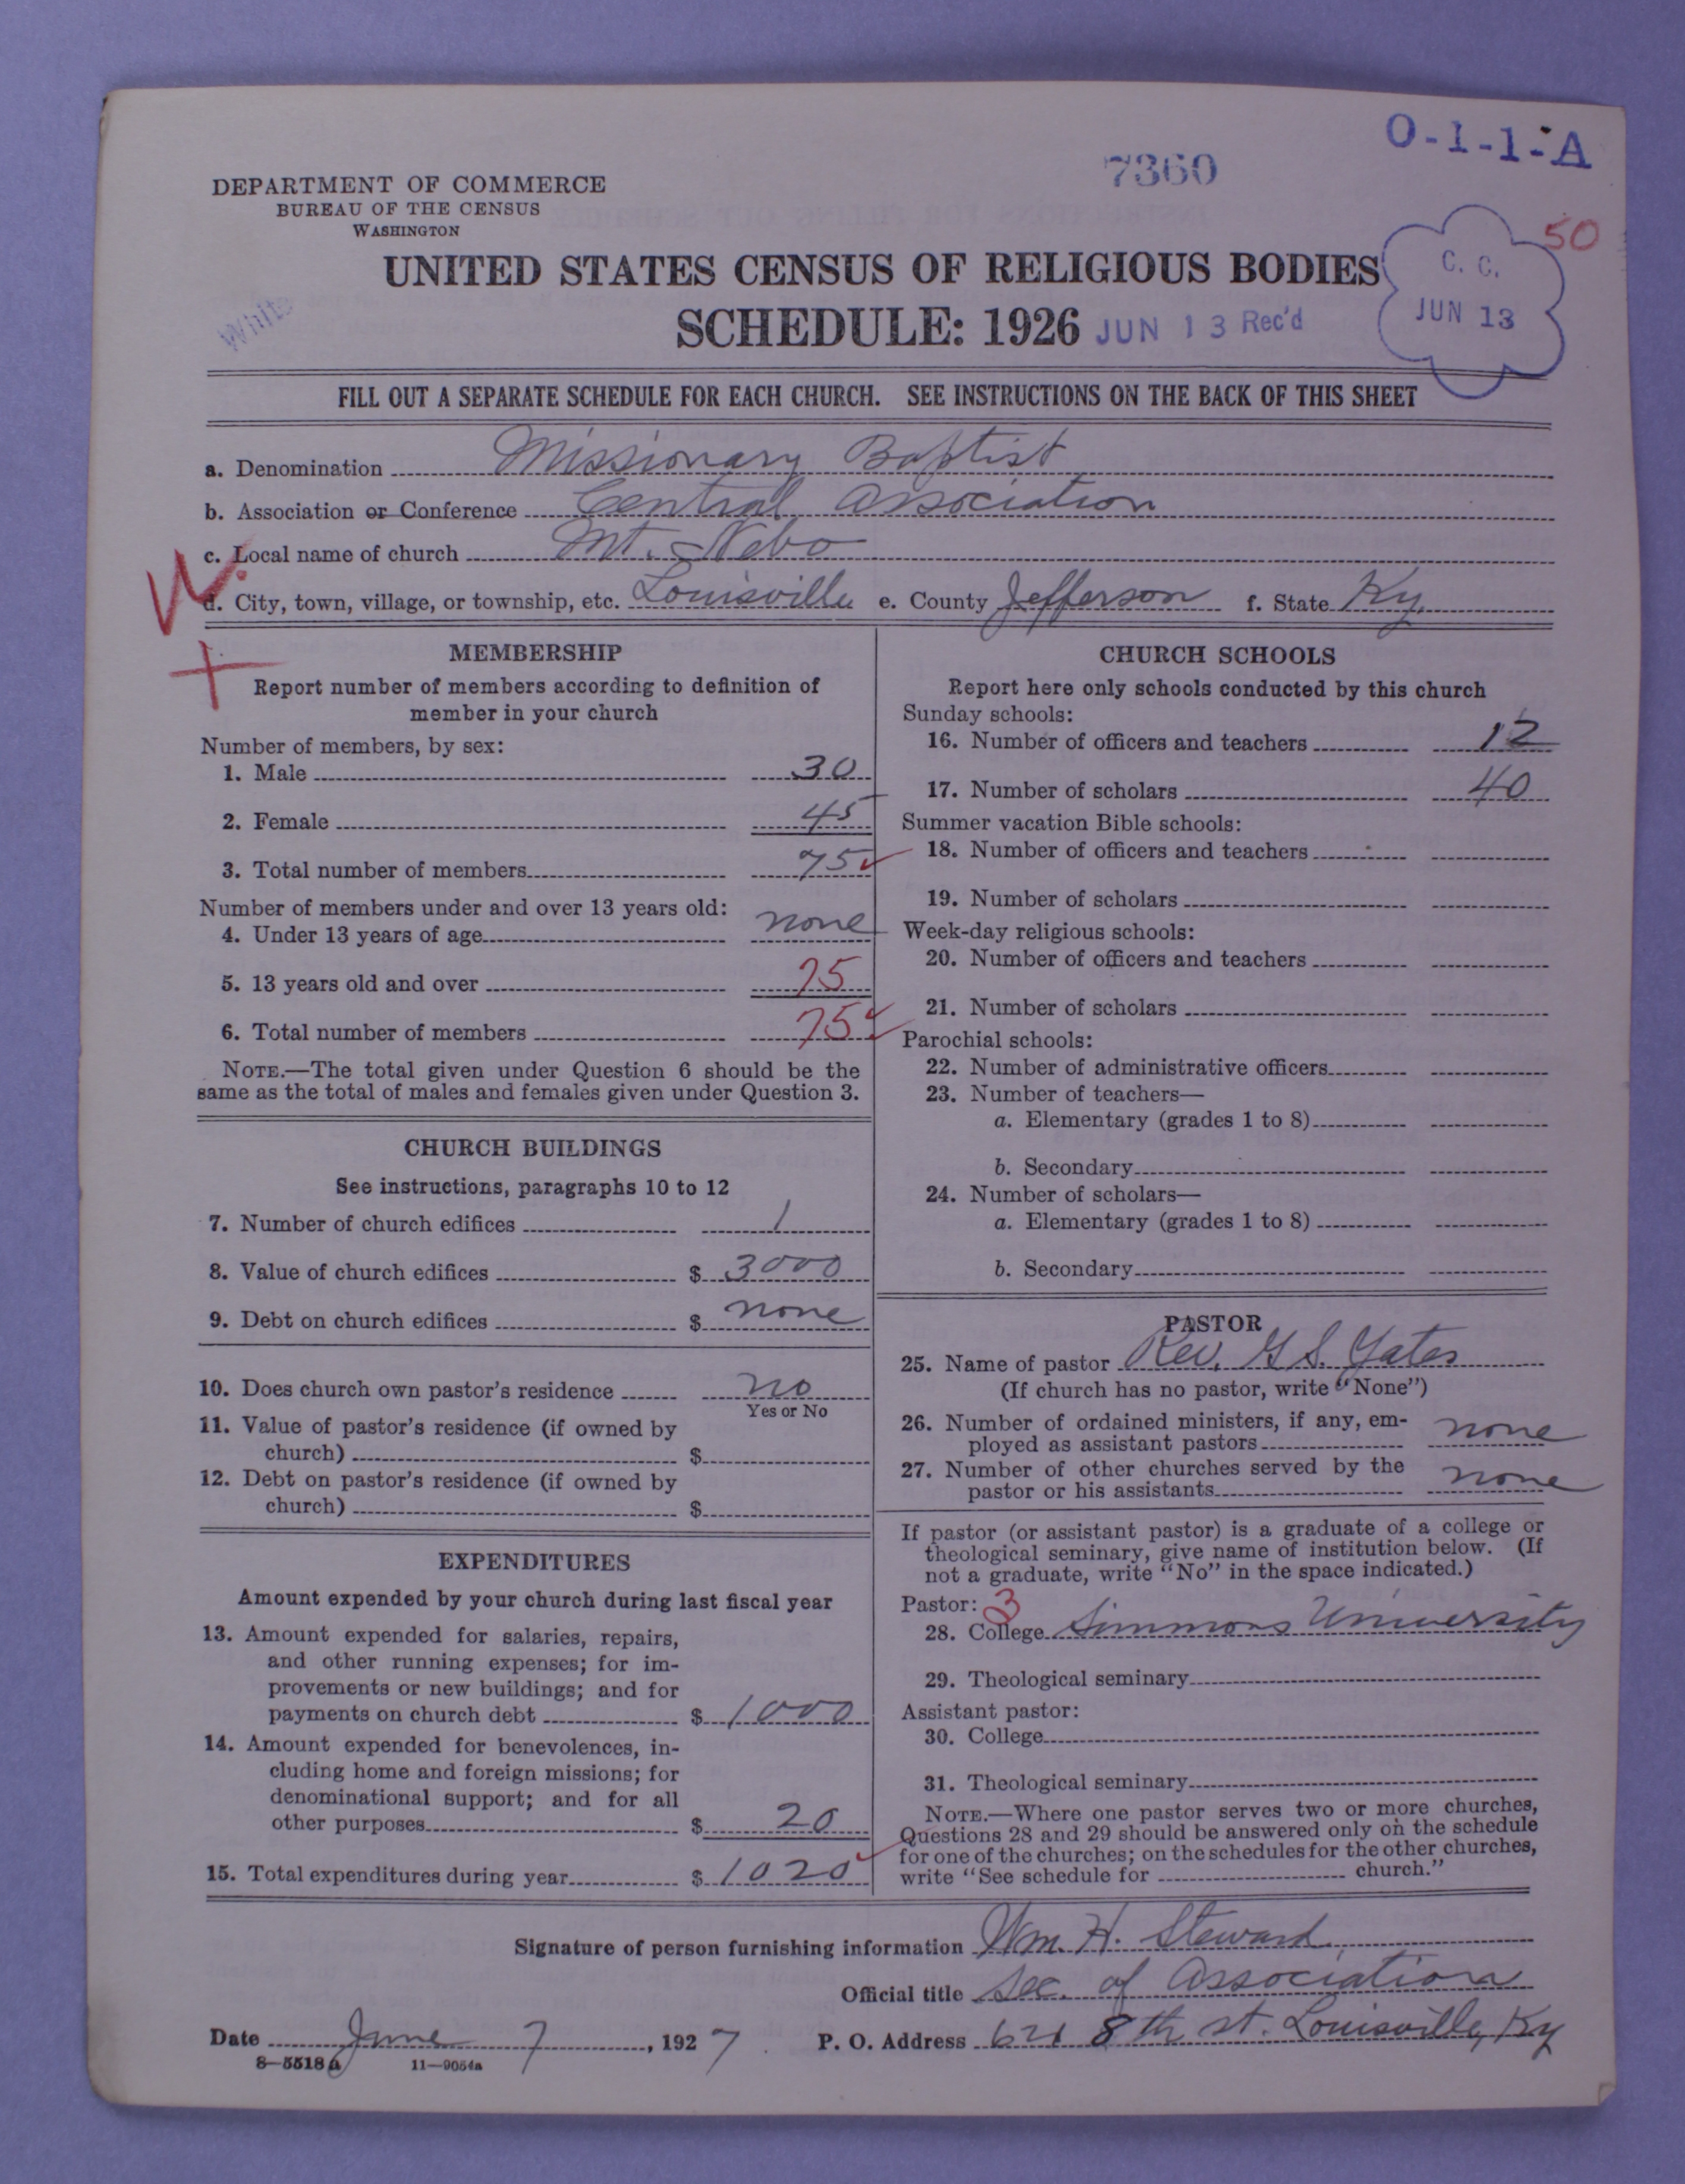 O-1-1-A
7360
DEPARTMENT OF COMMERCE
BUREAU OF THE CENSUS
WASHINGTON
50
UNITED STATES CENSUS OF RELIGIOUS BODIES
C. C.
JUN 13
White
SCHEDULE: 1926 JUN 13 Rec'd
FILL OUT A SEPARATE SCHEDULE FOR EACH CHURCH. SEE INSTRUCTIONS ON THE BACK OF THIS SHEET
a. Denomination Missionary Baptist
b. Association or Conference Central Association
c. Local name of church Mt. Nebo
d. City, town, village, or township, etc. Louisville e. County Jefferson f. State Ky.
MEMBERSHIP
Report number of members according to definition of
member in your church
Number of members, by sex:
1. Male 30
2. Female 45
3. Total number of members 75
Number of members under and over 13 years old:
4. Under 13 years of age none
5. 13 years old and over 75
6. Total number of members 75
NOTE.—The total given under Question 6 should be the
same as the total of males and females given under Question 3.
CHURCH BUILDINGS
See instructions, paragraphs 10 to 12
7. Number of church edifices 1
8. Value of church edifices $ 3000
9. Debt on church edifices $ none
10. Does church own pastor's residence no
Yes or No
11. Value of pastor's residence (if owned by
church) $
12. Debt on pastor's residence (if owned by
church) $
EXPENDITURES
Amount expended by your church during last fiscal year
13. Amount expended for salaries, repairs,
and other running expenses; for im-
provements or new buildings; and for
payments on church debt $ 1000
14. Amount expended for benevolences, in-
cluding home and foreign missions; for
denominational support; and for all
other purposes $ 20
15. Total expenditures during year $ 1020
CHURCH SCHOOLS
Report here only schools conducted by this church
Sunday schools:
16. Number of officers and teachers 12
17. Number of scholars 40
Summer vacation Bible schools:
18. Number of officers and teachers
19. Number of scholars
Week-day religious schools:
20. Number of officers and teachers
21. Number of scholars
Parochial schools:
22. Number of administrative officers
23. Number of teachers—
a. Elementary (grades 1 to 8)
b. Secondary
24. Number of scholars—
a. Elementary (grades 1 to 8)
b. Secondary
PASTOR
25. Name of pastor Rev. G S. Yates
(If church has no pastor, write "None")
26. Number of ordained ministers, if any, em-
ployed as assistant pastors none
27. Number of other churches served by the
pastor or his assistants none
If pastor (or assistant pastor) is a graduate of a college or
theological seminary, give name of institution below. (If
not a graduate, write "No" in the space indicated.)
Pastor: 3
28. College Simmons University
29. Theological seminary
Assistant pastor:
30. College
31. Theological seminary
NOTE.—Where one pastor serves two or more churches,
Questions 28 and 29 should be answered only on the schedule
for one of the churches; on the schedules for the other churches,
write "See schedule for church."
Signature of person furnishing information Wm. H. Steward
Official title Sec. of Association
Date June 7, 1927 P. O. Address 621 8th st. Louisville, Ky
8—5518a 11—9054a